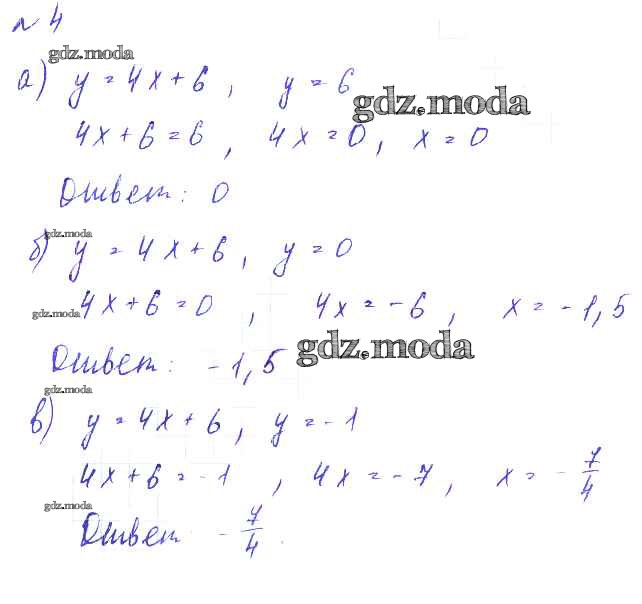 № 4
gdz.moda
а) y = 4x + 6, y = 6
gdz.moda
4x + 6 = 6, 4x = 0, x = 0
Ответ: 0
gdz.moda
б) y = 4x + 6, y = 0
gdz.moda 4x + 6 = 0, 4x = -6, x = -1,5
Ответ: -1,5
gdz.moda
gdz.moda
в) y = 4x + 6, y = -1
4x + 6 = -1, 4x = -7, x = -7/4
gdz.moda
Ответ -7/4.